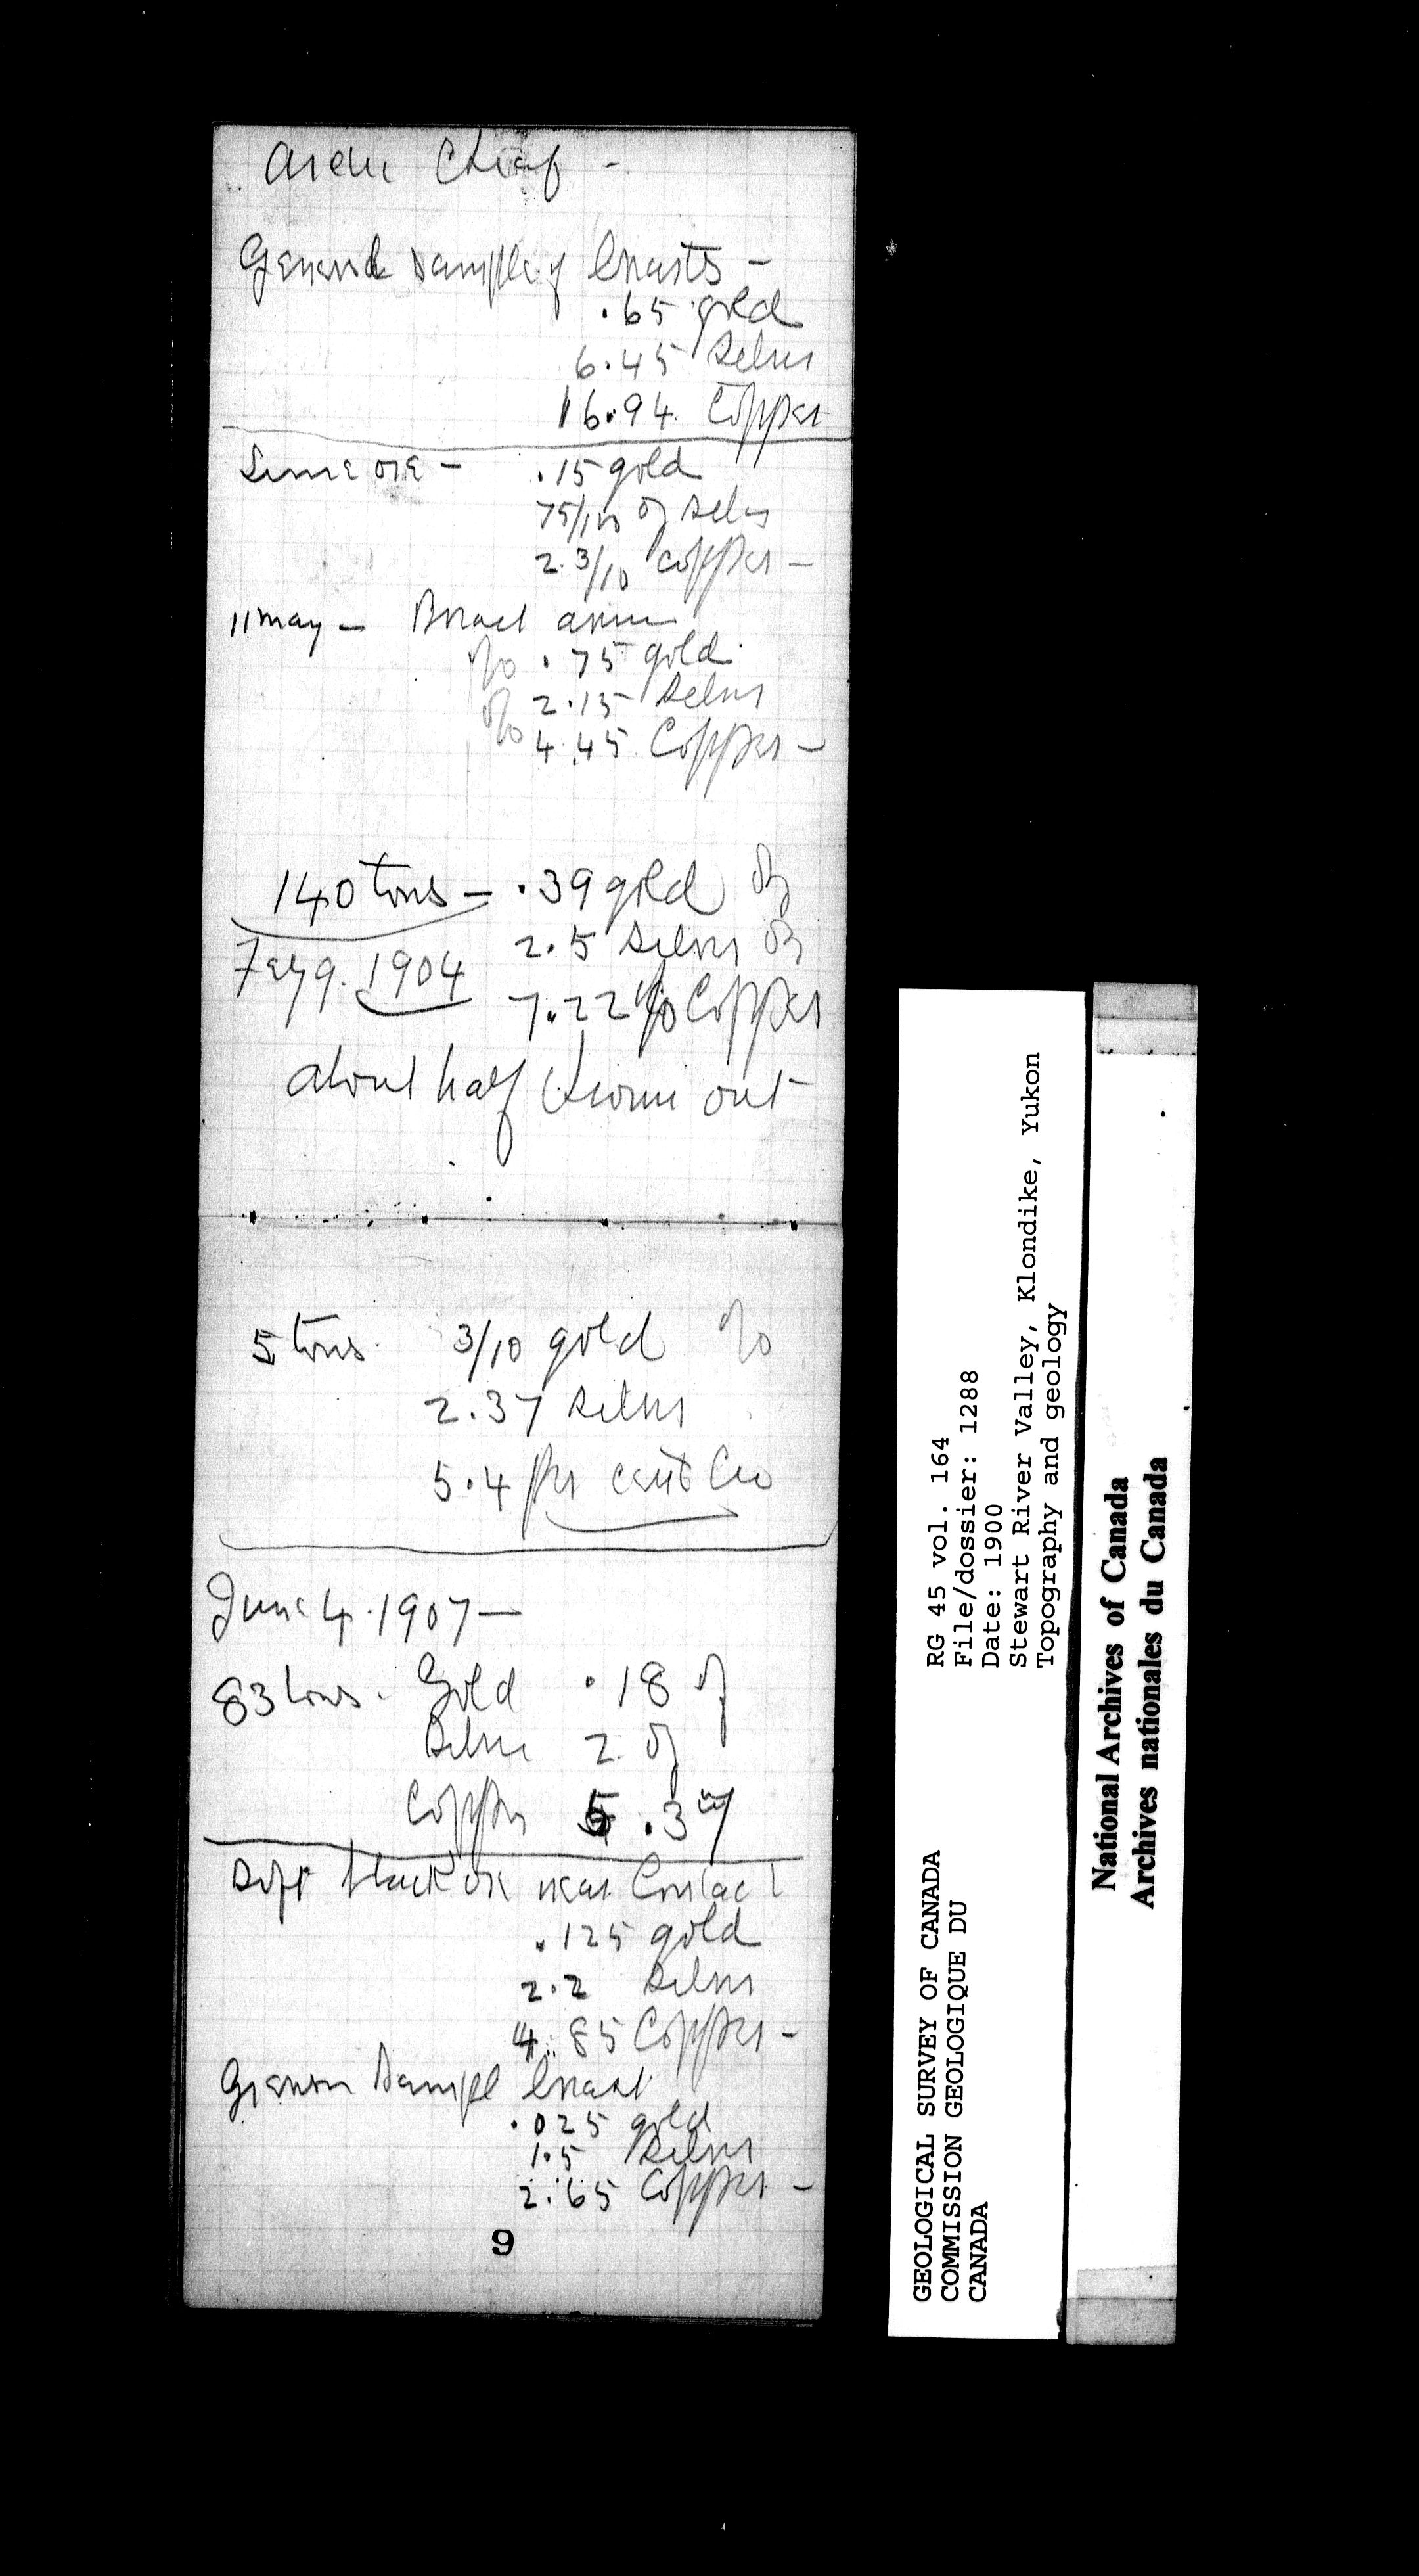 Arctic Chief -
General sample of
.65 gold
6.45 silver
16.94 Copper
Lime ore - .15 gold
75/100 oz silver
2.3/10 copper -
11 May -
% .75 gold
% 2.15 silver
% 4.45 Copper -
140 tons - .39 gold oz
2.5 silver oz
1904
7.22 % Copper
about half thrown out
5 tons 3/10 gold %
2.37 silver
5.4 per cent Cu
June 4. 1907 -
83 tons. Gold .18 oz
Silver 2. oz
Copper 5.37
Soft black ore near Contact
.125 gold
2.2 silver
4.85 Copper -
sample
.025 gold
1.5 silver
2.65 Copper -
9
RG 45 vol. 164
File/dossier: 1288
Date: 1900
Stewart River Valley, Klondike, Yukon
Topography and geology
GEOLOGICAL SURVEY OF CANADA
COMMISSION GEOLOGIQUE DU
CANADA
National Archives of Canada
Archives nationales du Canada